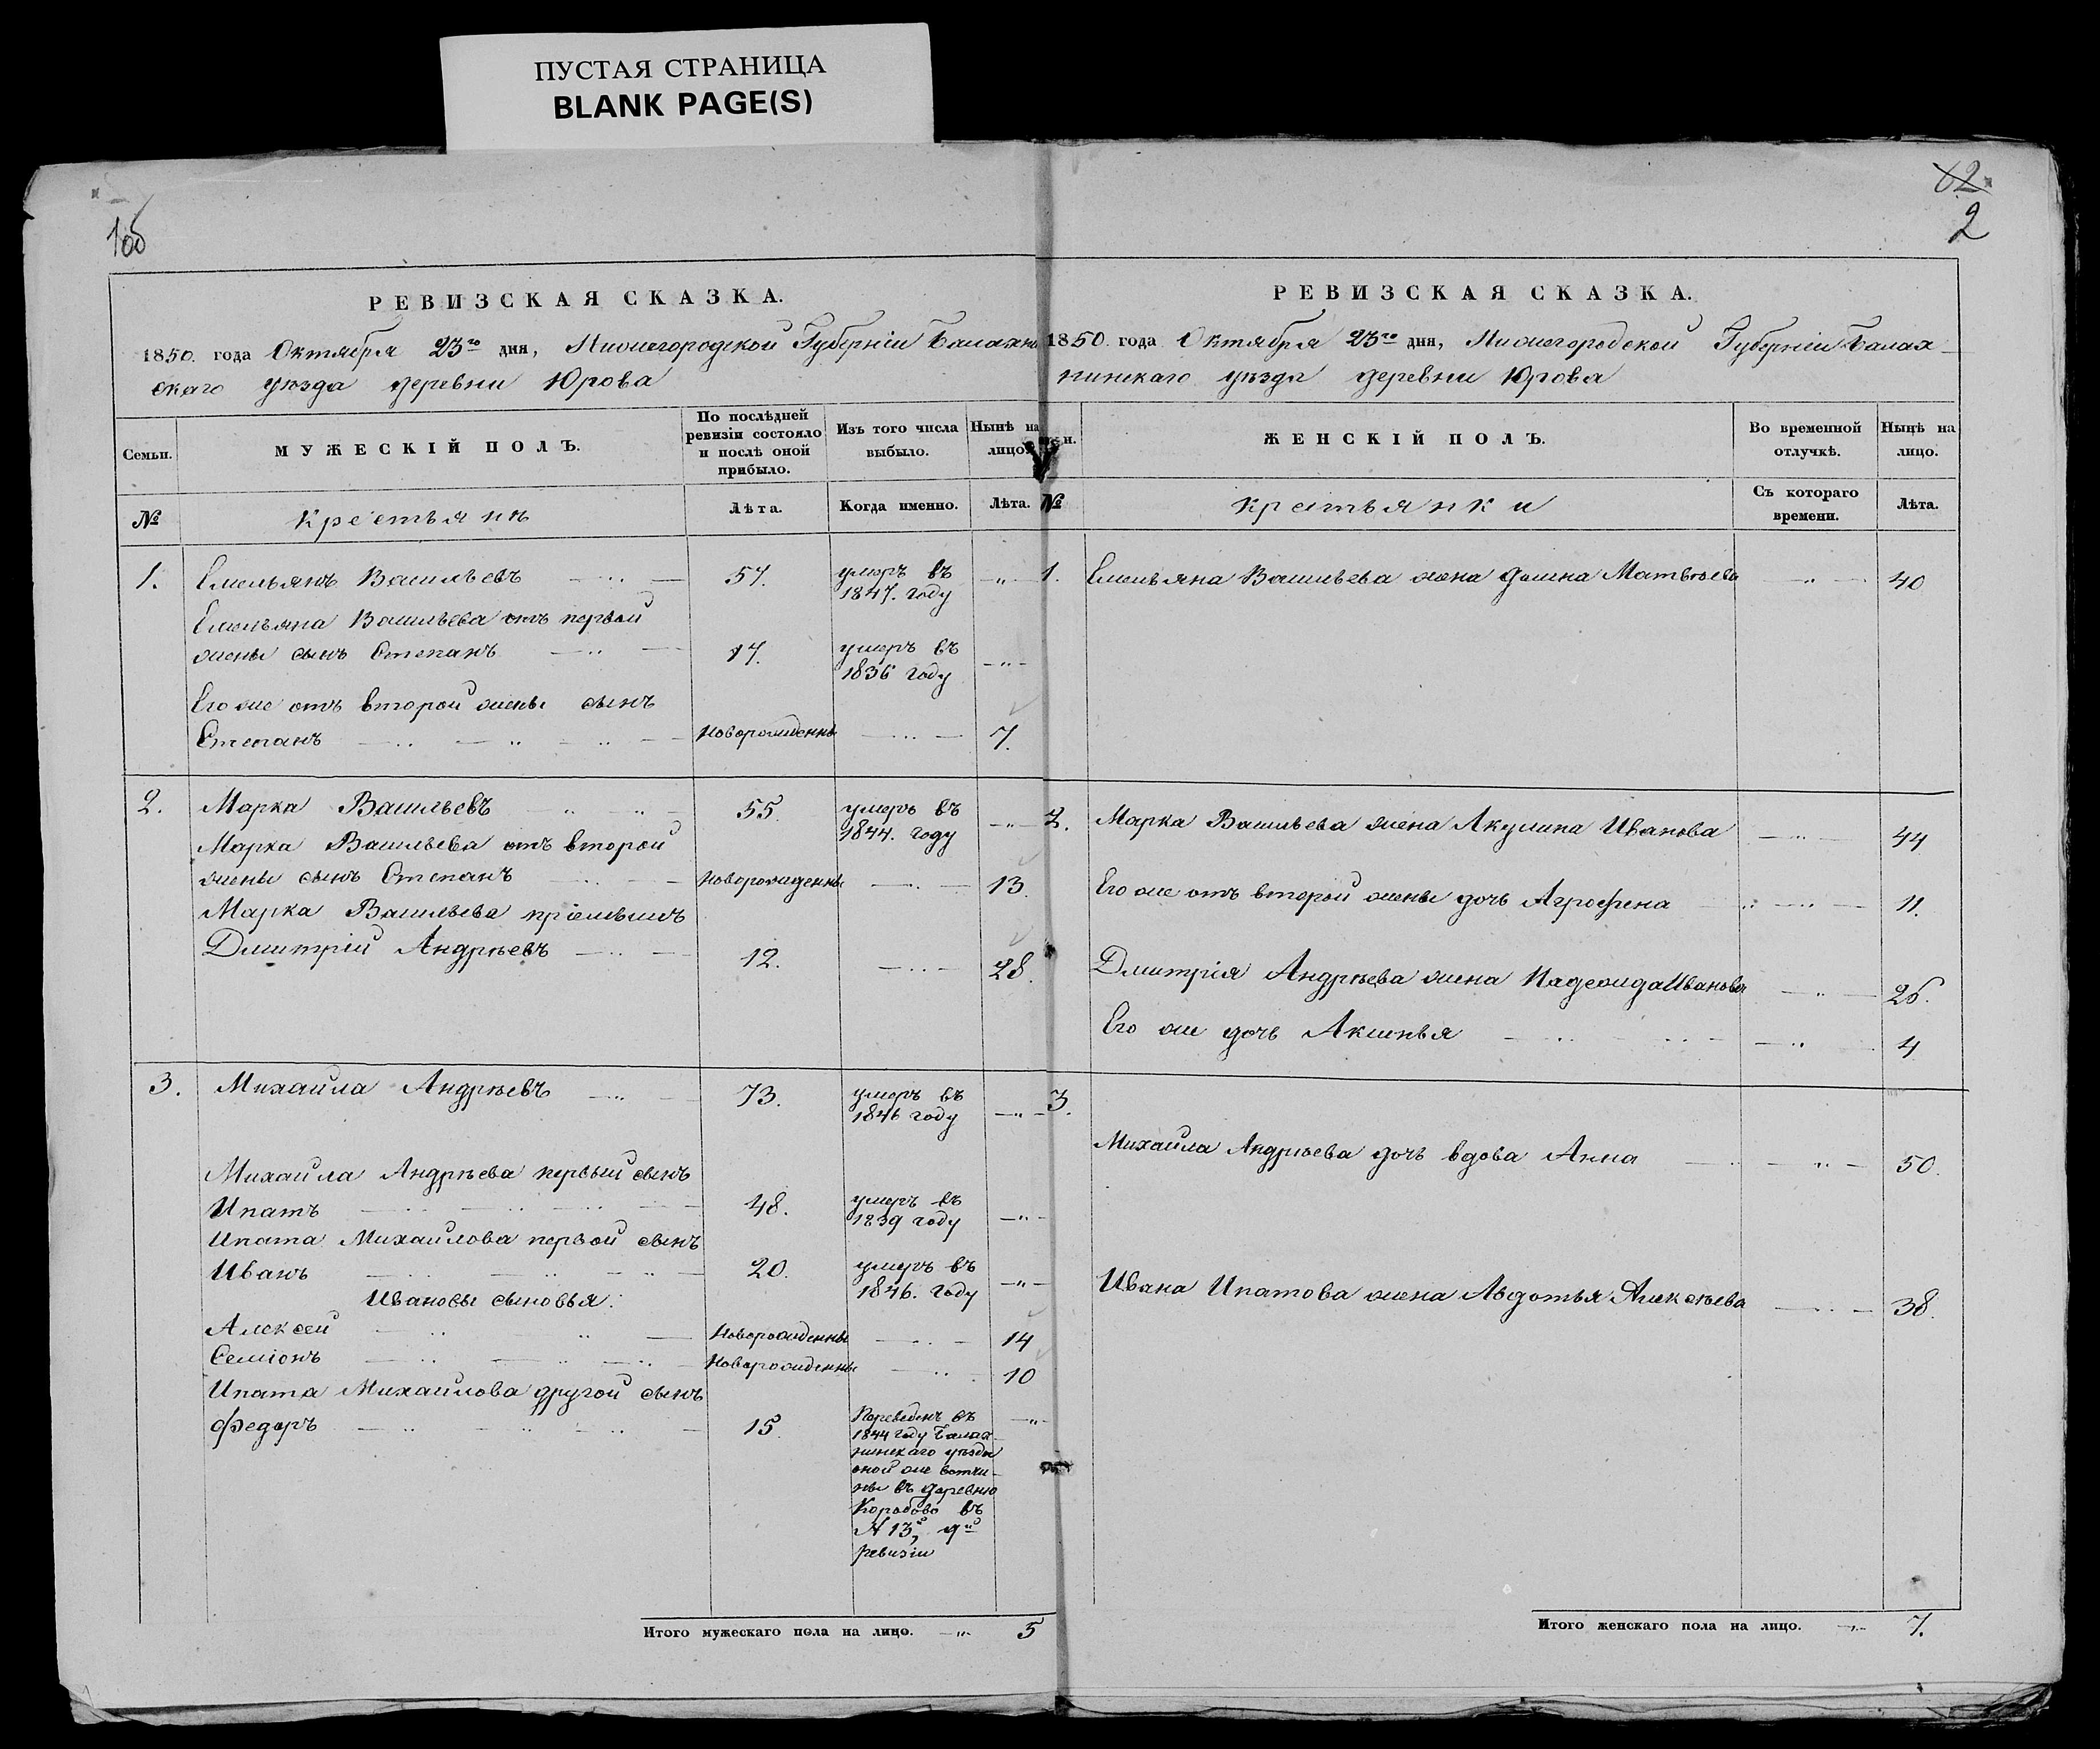 ПУСТАЯ СТРАНИЦА
BLANK PAGE(S)
1об
2
РЕВИЗСКАЯ СКАЗКА.
1850. года Октября 23го дня, Нижегородской Губерніи Балахнин
скаго уѣзда деревни Юрова
Семьи.
МУЖЕСКІЙ ПОЛЪ.
По послѣдней ревизіи состояло и послѣ оной прибыло.
Изъ того числа выбыло.
Нынѣ на лицо.
№
Крестьянъ
Лѣта.
Когда именно.
Лѣта.
1. Емельянъ Васильевъ 57. умеръ въ 1847. году
Емельяна Васильева отъ первой
жены сынъ Степанъ 17. умеръ въ 1836 году
Его же отъ второй жены сынъ
Степанъ Новорожденны 7.
2. Марка Васильевъ 55. умеръ въ 1844. году
Марка Васильева отъ второй
жены сынъ Степанъ Новорожденны 13.
Марка Васильева пріемышъ
Дмитрій Андрѣевъ 12. 28.
3. Михайла Андрѣевъ 73. умеръ въ 1846 году
Михайла Андрѣева первый сынъ
Ипатъ 48. умеръ въ 1839 году
Ипата Михайлова первой сынъ
Иванъ 20. умеръ въ 1846. году
Ивановы сыновья:
Алексей Новорожденны 14
Семіонъ Новорожденны 10
Ипата Михайлова другой сынъ
Федоръ 15 Переведенъ въ
1844 году Балах
нинскаго уѣзда
оной же вотчи-
ны въ деревню
Коробово въ
№ 13й,
ревизіи
Итого мужескаго пола на лицо. 5
РЕВИЗСКАЯ СКАЗКА.
1850. года Октября 23го дня, Нижегородской Губерніи Балах
нинскаго уѣзда деревни Юрова
ЖЕНСКІЙ ПОЛЪ.
Во временной отлучкѣ.
Нынѣ на лицо.
№
Крестьянки
Съ котораго времени.
Лѣта.
1. Емельяна Васильева жена Домна Матвѣева 40
2. Марка Васильева жена Акулина Иванова 44
Его же отъ второй жены дочь Агрофена 11.
Дмитрія Андрѣева жена Надежида Иванова 26.
Его же дочь Аксинья 4
3.
Михайла Андрѣева дочь вдова Анна 50.
Ивана Ипатова жена Авдотья Алексѣева 38.
Итого женскаго пола на лицо. 7.